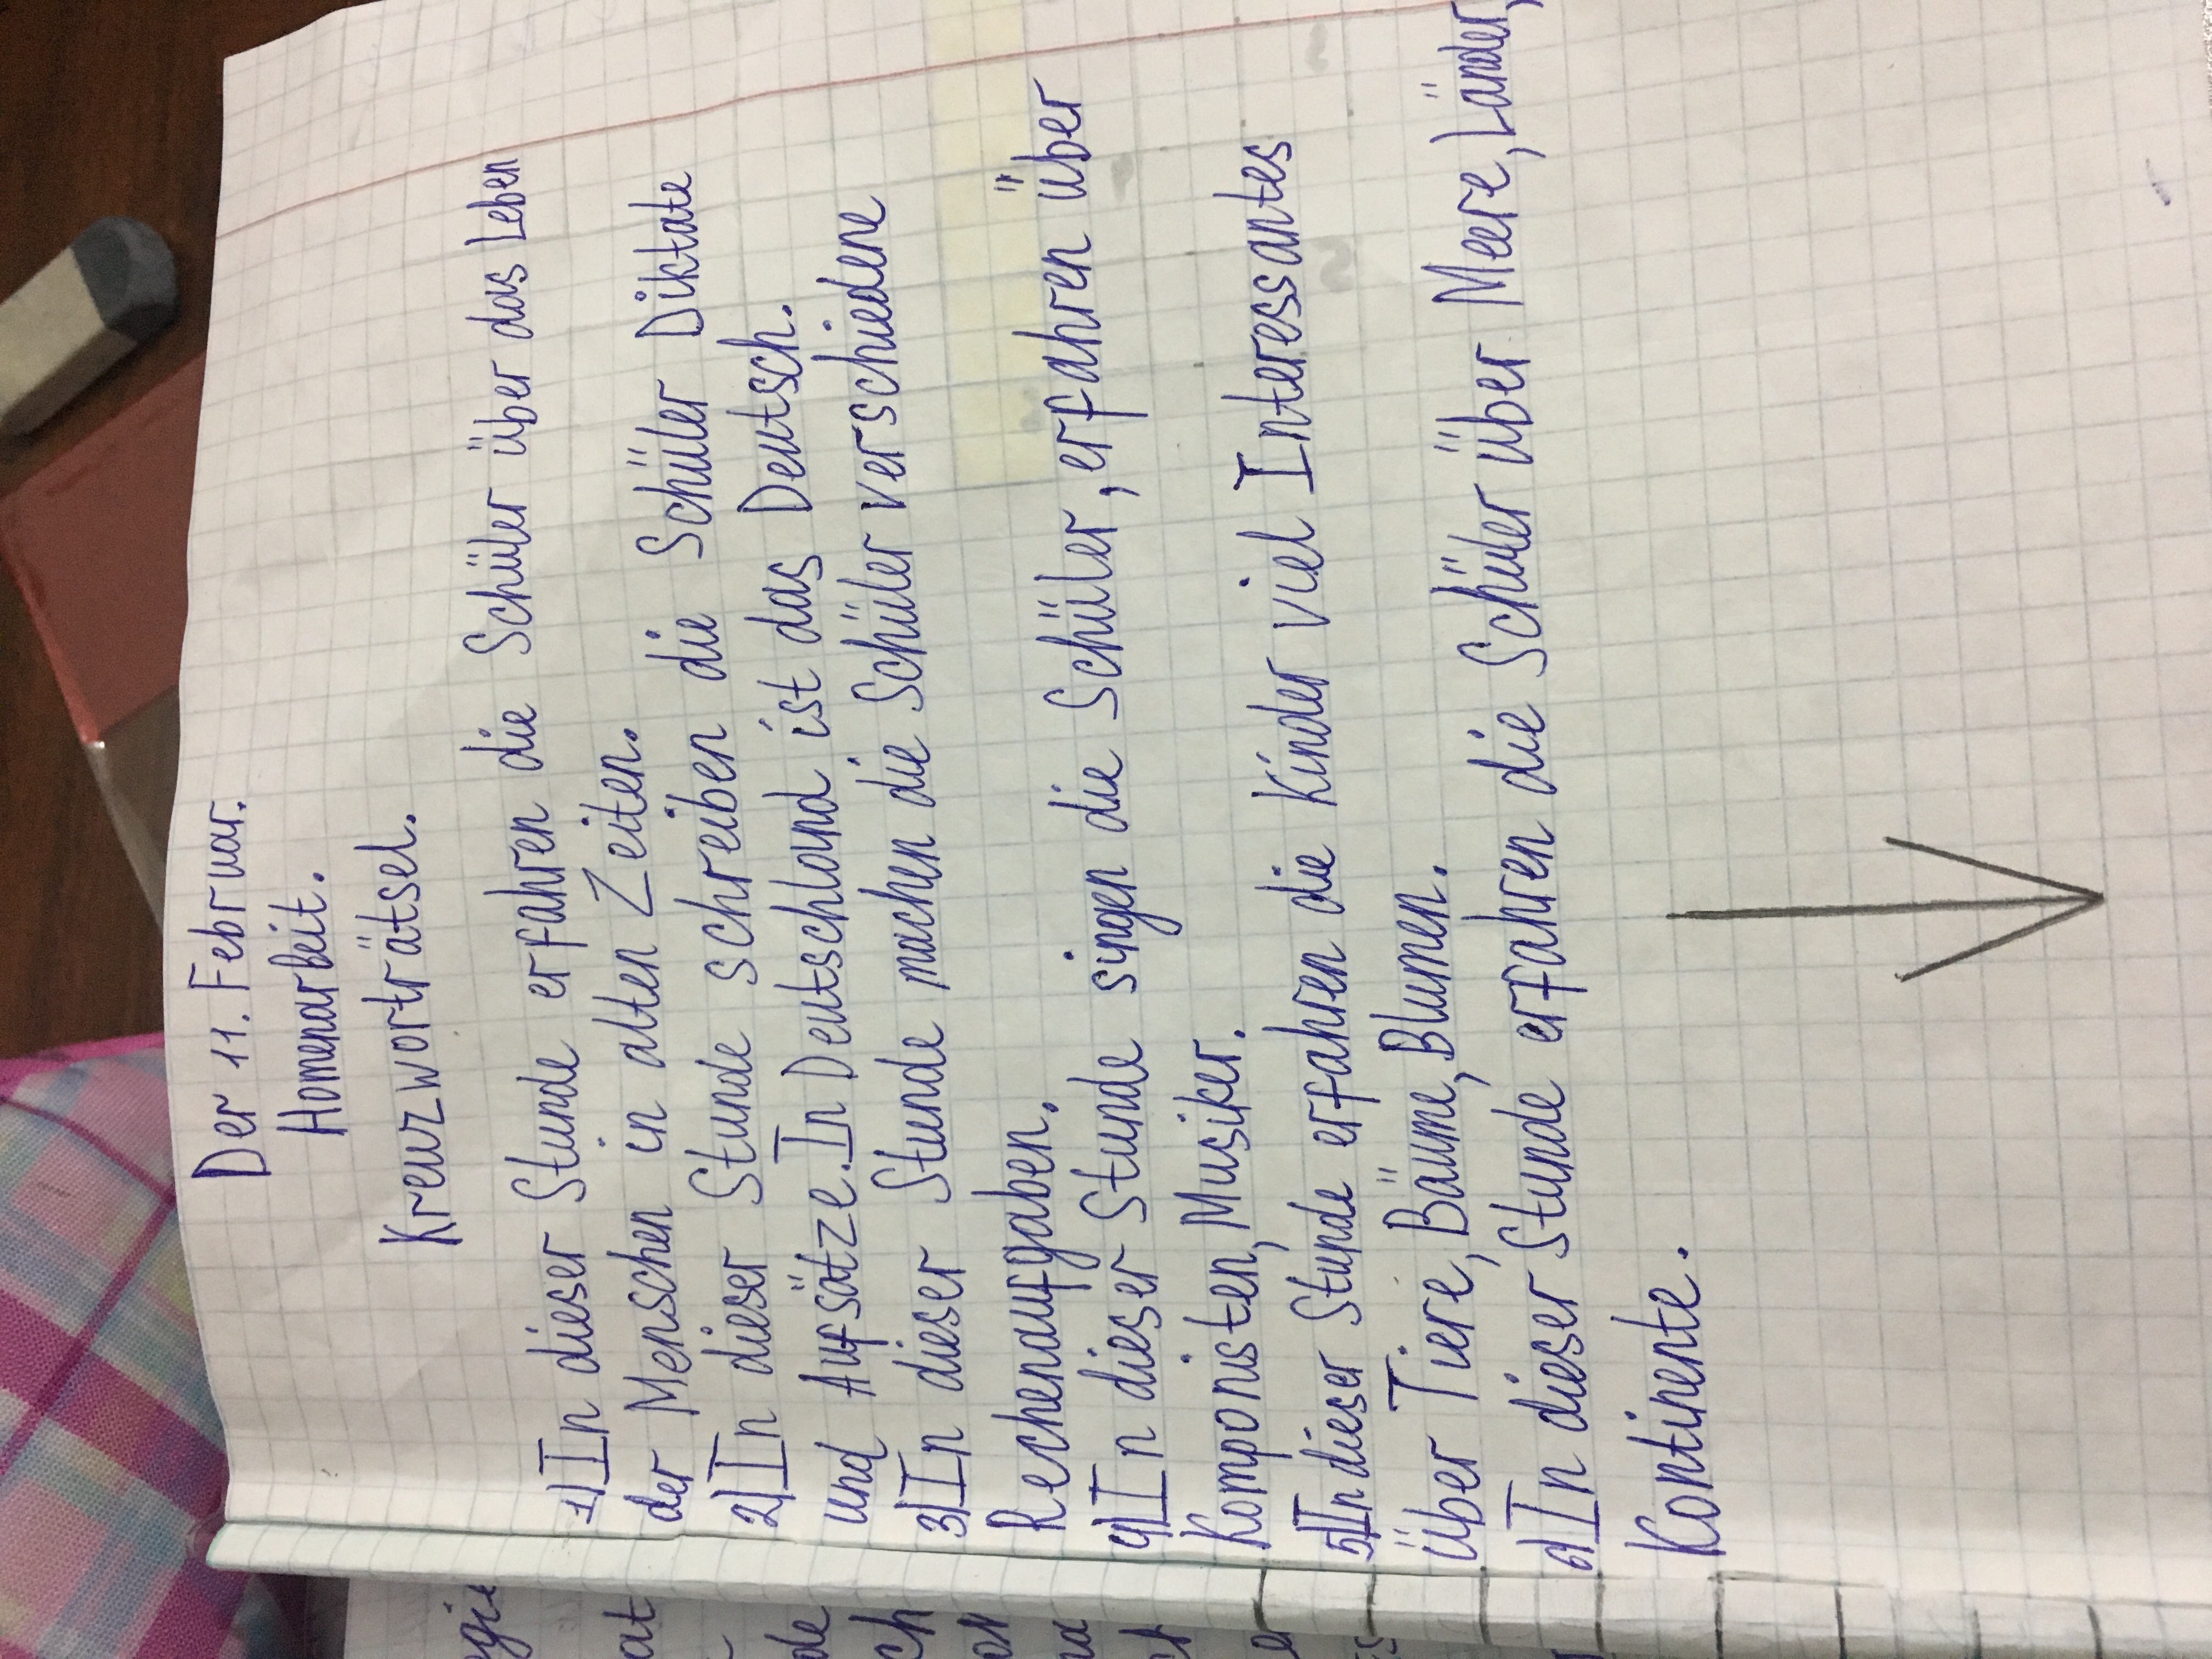 Der 11. Februar.
Homenarbeit.
Kreuzworträtsel.
1) In dieser Stunde erfahren die Schüler über das Leben
der Menschen in alten Zeiten.
2) In dieser Stunde schreiben die Schüler Diktate
und Aufsätze. In Deutschland ist das Deutsch.
3) In dieser Stunde machen die Schüler verschiedene
Rechenaufgaben.
4) In dieser Stunde singen die Schüler, erfahren über
Komponisten, Musiker.
5) In dieser Stunde erfahren die Kinder viel Interessantes
über Tiere, Bäume, Blumen.
6) In dieser Stunde erfahren die Schüler über Meere, Länder,
Kontinente.